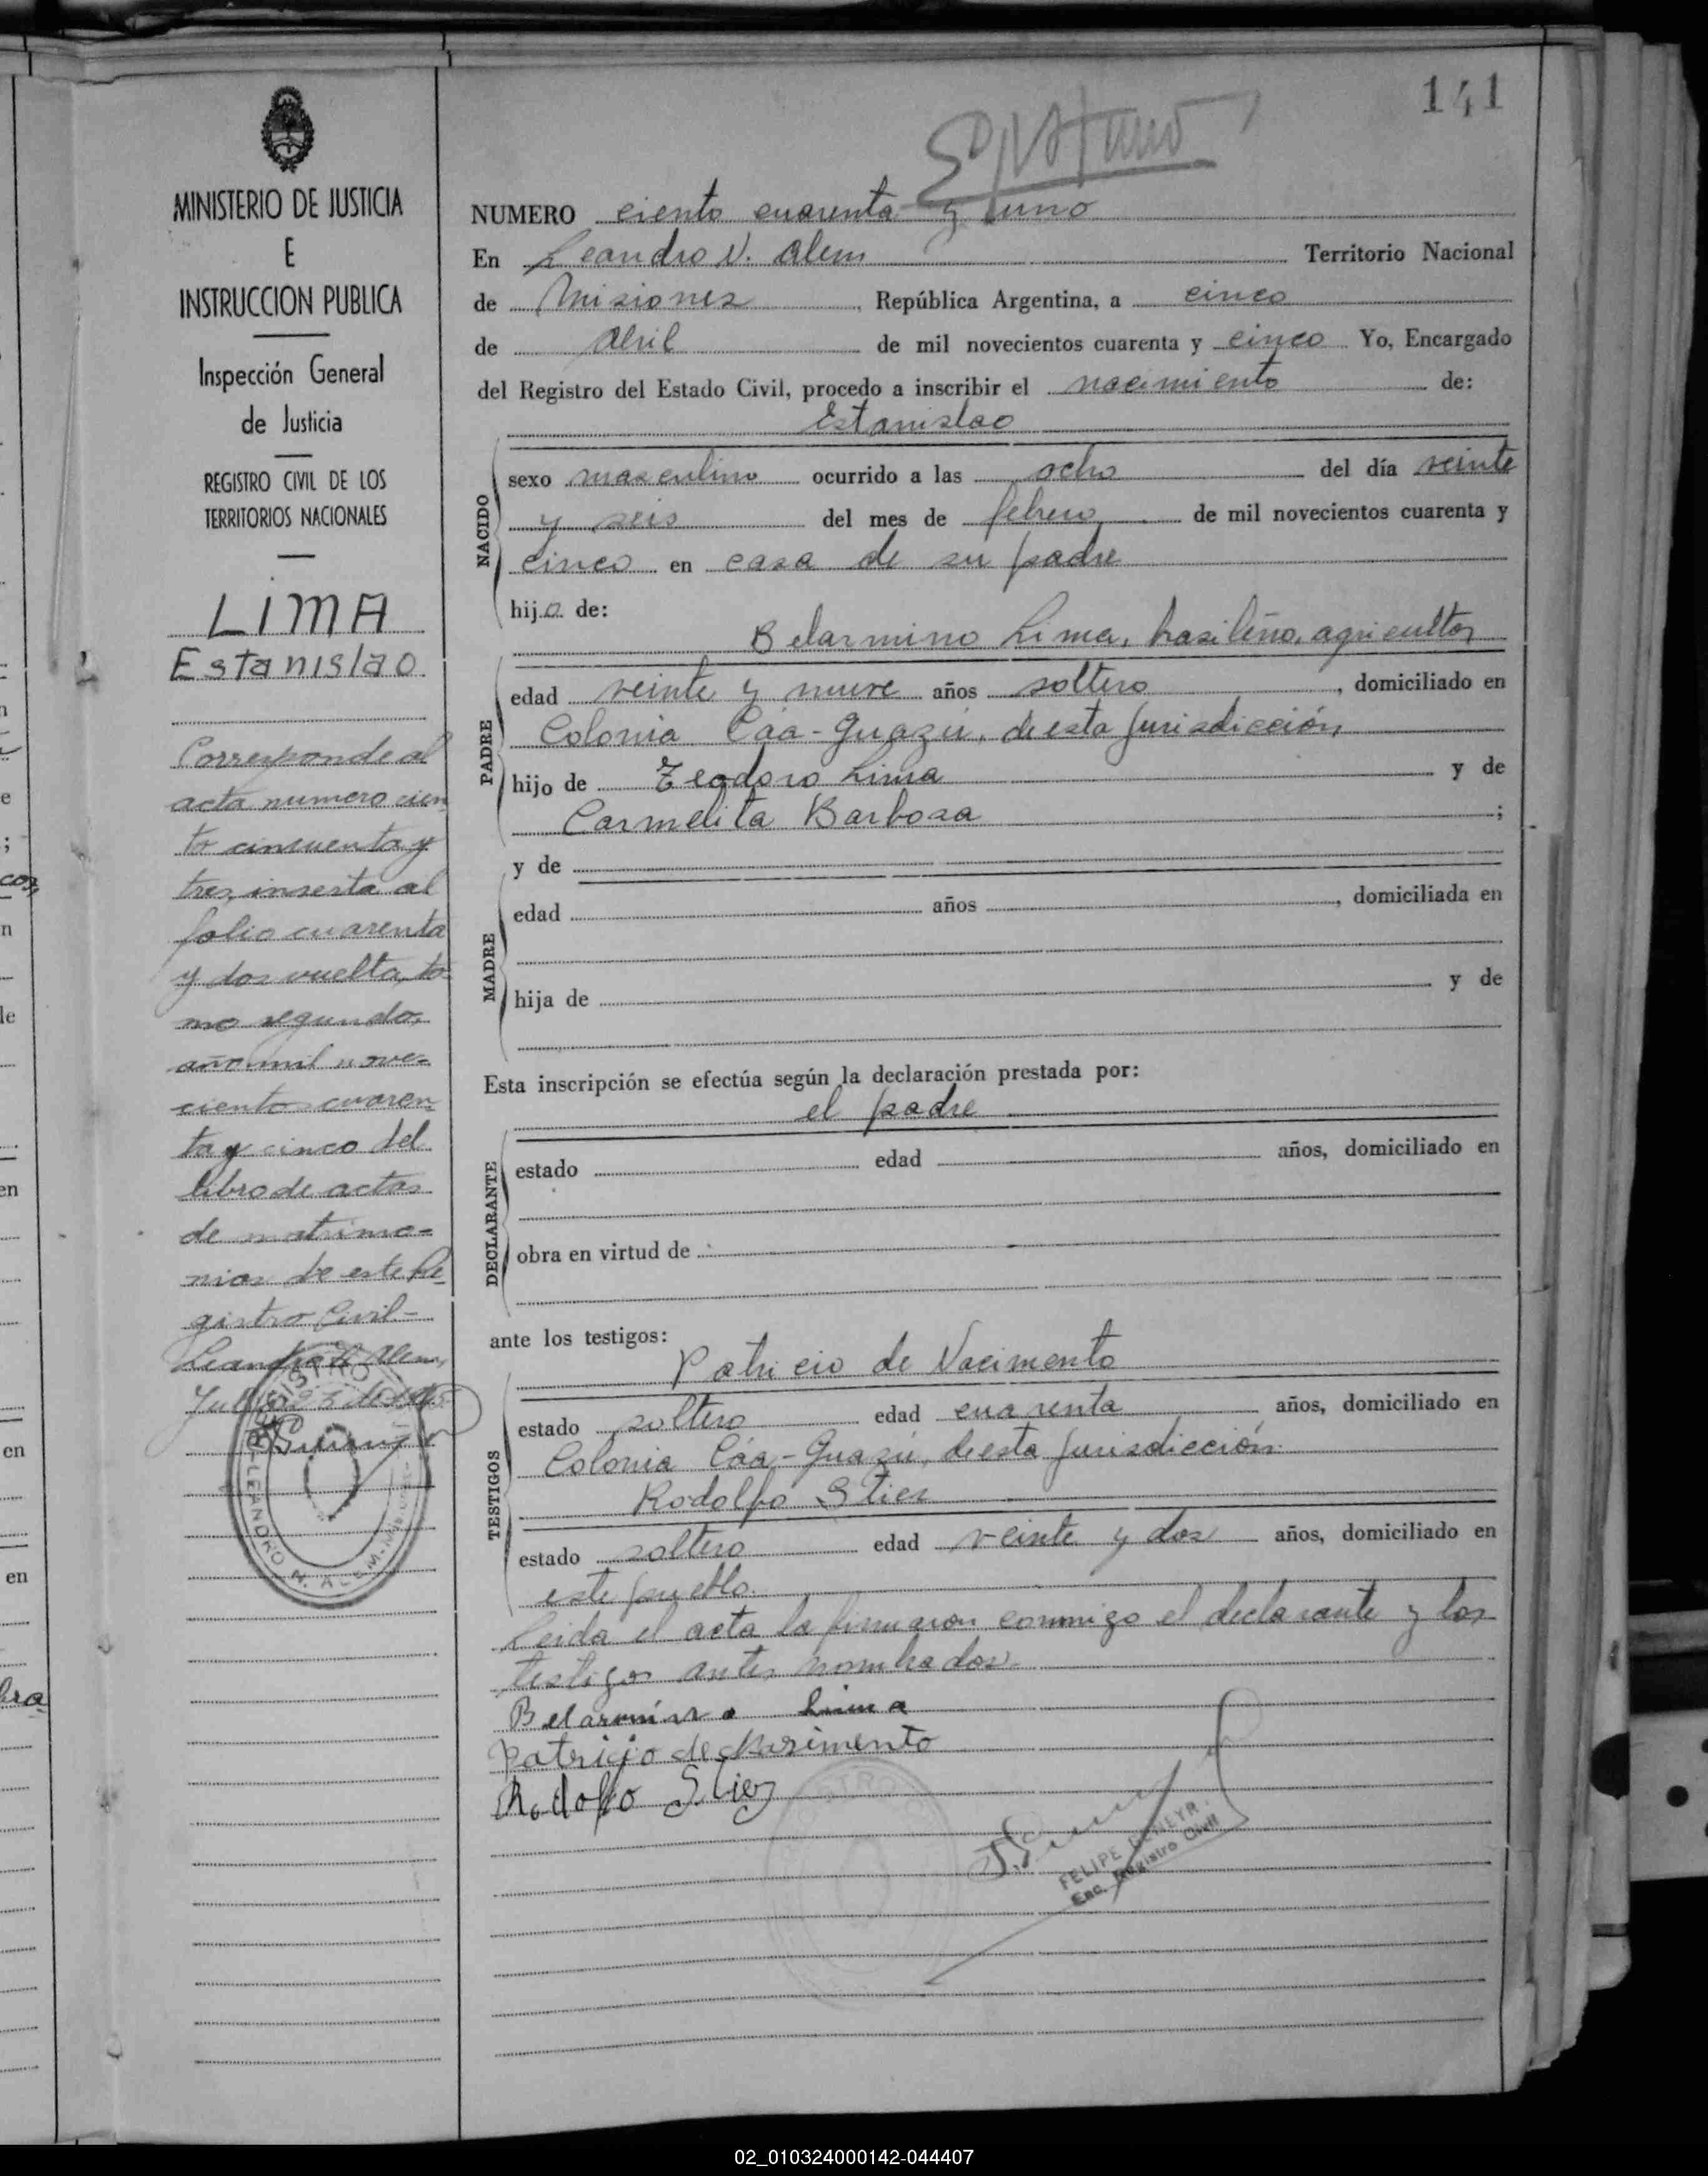 141
MINISTERIO DE JUSTICIA
E
INSTRUCCION PUBLICA
Inspección General
de Justicia
REGISTRO CIVIL DE LOS
TERRITORIOS NACIONALES
LIMA
Estanislao
Corresponde al
acta numero cien
to cincuenta y
tres, inserta al
folio cuarenta
y dos vuelta, to-
mo segundo,
año mil nove-
cientos cuaren
ta y cinco del
libro de actas
de matrimo-
nios de este Re
gistro Civil-
Leandro N. Alem,
NUMERO ciento cuarenta y uno
En Leandro N. Alem Territorio Nacional
de Misiones, República Argentina, a cinco
de Abril de mil novecientos cuarenta y cinco Yo, Encargado
del Registro del Estado Civil, procedo a inscribir el nacimiento de:
Estanislao
NACIDO
sexo masculino ocurrido a las ocho del día veinte
y seis del mes de febrero de mil novecientos cuarenta y
cinco en casa de su padre
hijo de:
Belarmino Lima, brasileño, agricultor
PADRE
edad veinte y nueve años soltero, domiciliado en
Colonia Cáa-Guazú, de esta Jurisdicción,
hijo de Teodoro Lima y de
Carmelita Barbosa;
y de
MADRE
edad años, domiciliada en
hija de y de
Esta inscripción se efectúa según la declaración prestada por:
el padre
DECLARANTE
estado edad años, domiciliado en
obra en virtud de
ante los testigos:
Patricio de Nacimento
TESTIGOS
estado soltero edad cuarenta años, domiciliado en
Colonia Cáa-Guazú, de esta Jurisdicción
Rodolfo Stier
estado soltero edad veinte y dos años, domiciliado en
este pueblo.
Leida el acta la firmaron conmigo el declarante y los
testigos antes nombrados.
Belarmino Lima
patricio de Nasimento
Rodolfo Stier
FELIPE
Enc. Registro Civil
REGISTRO
LEANDRO N. ALEM
02_010324000142-044407